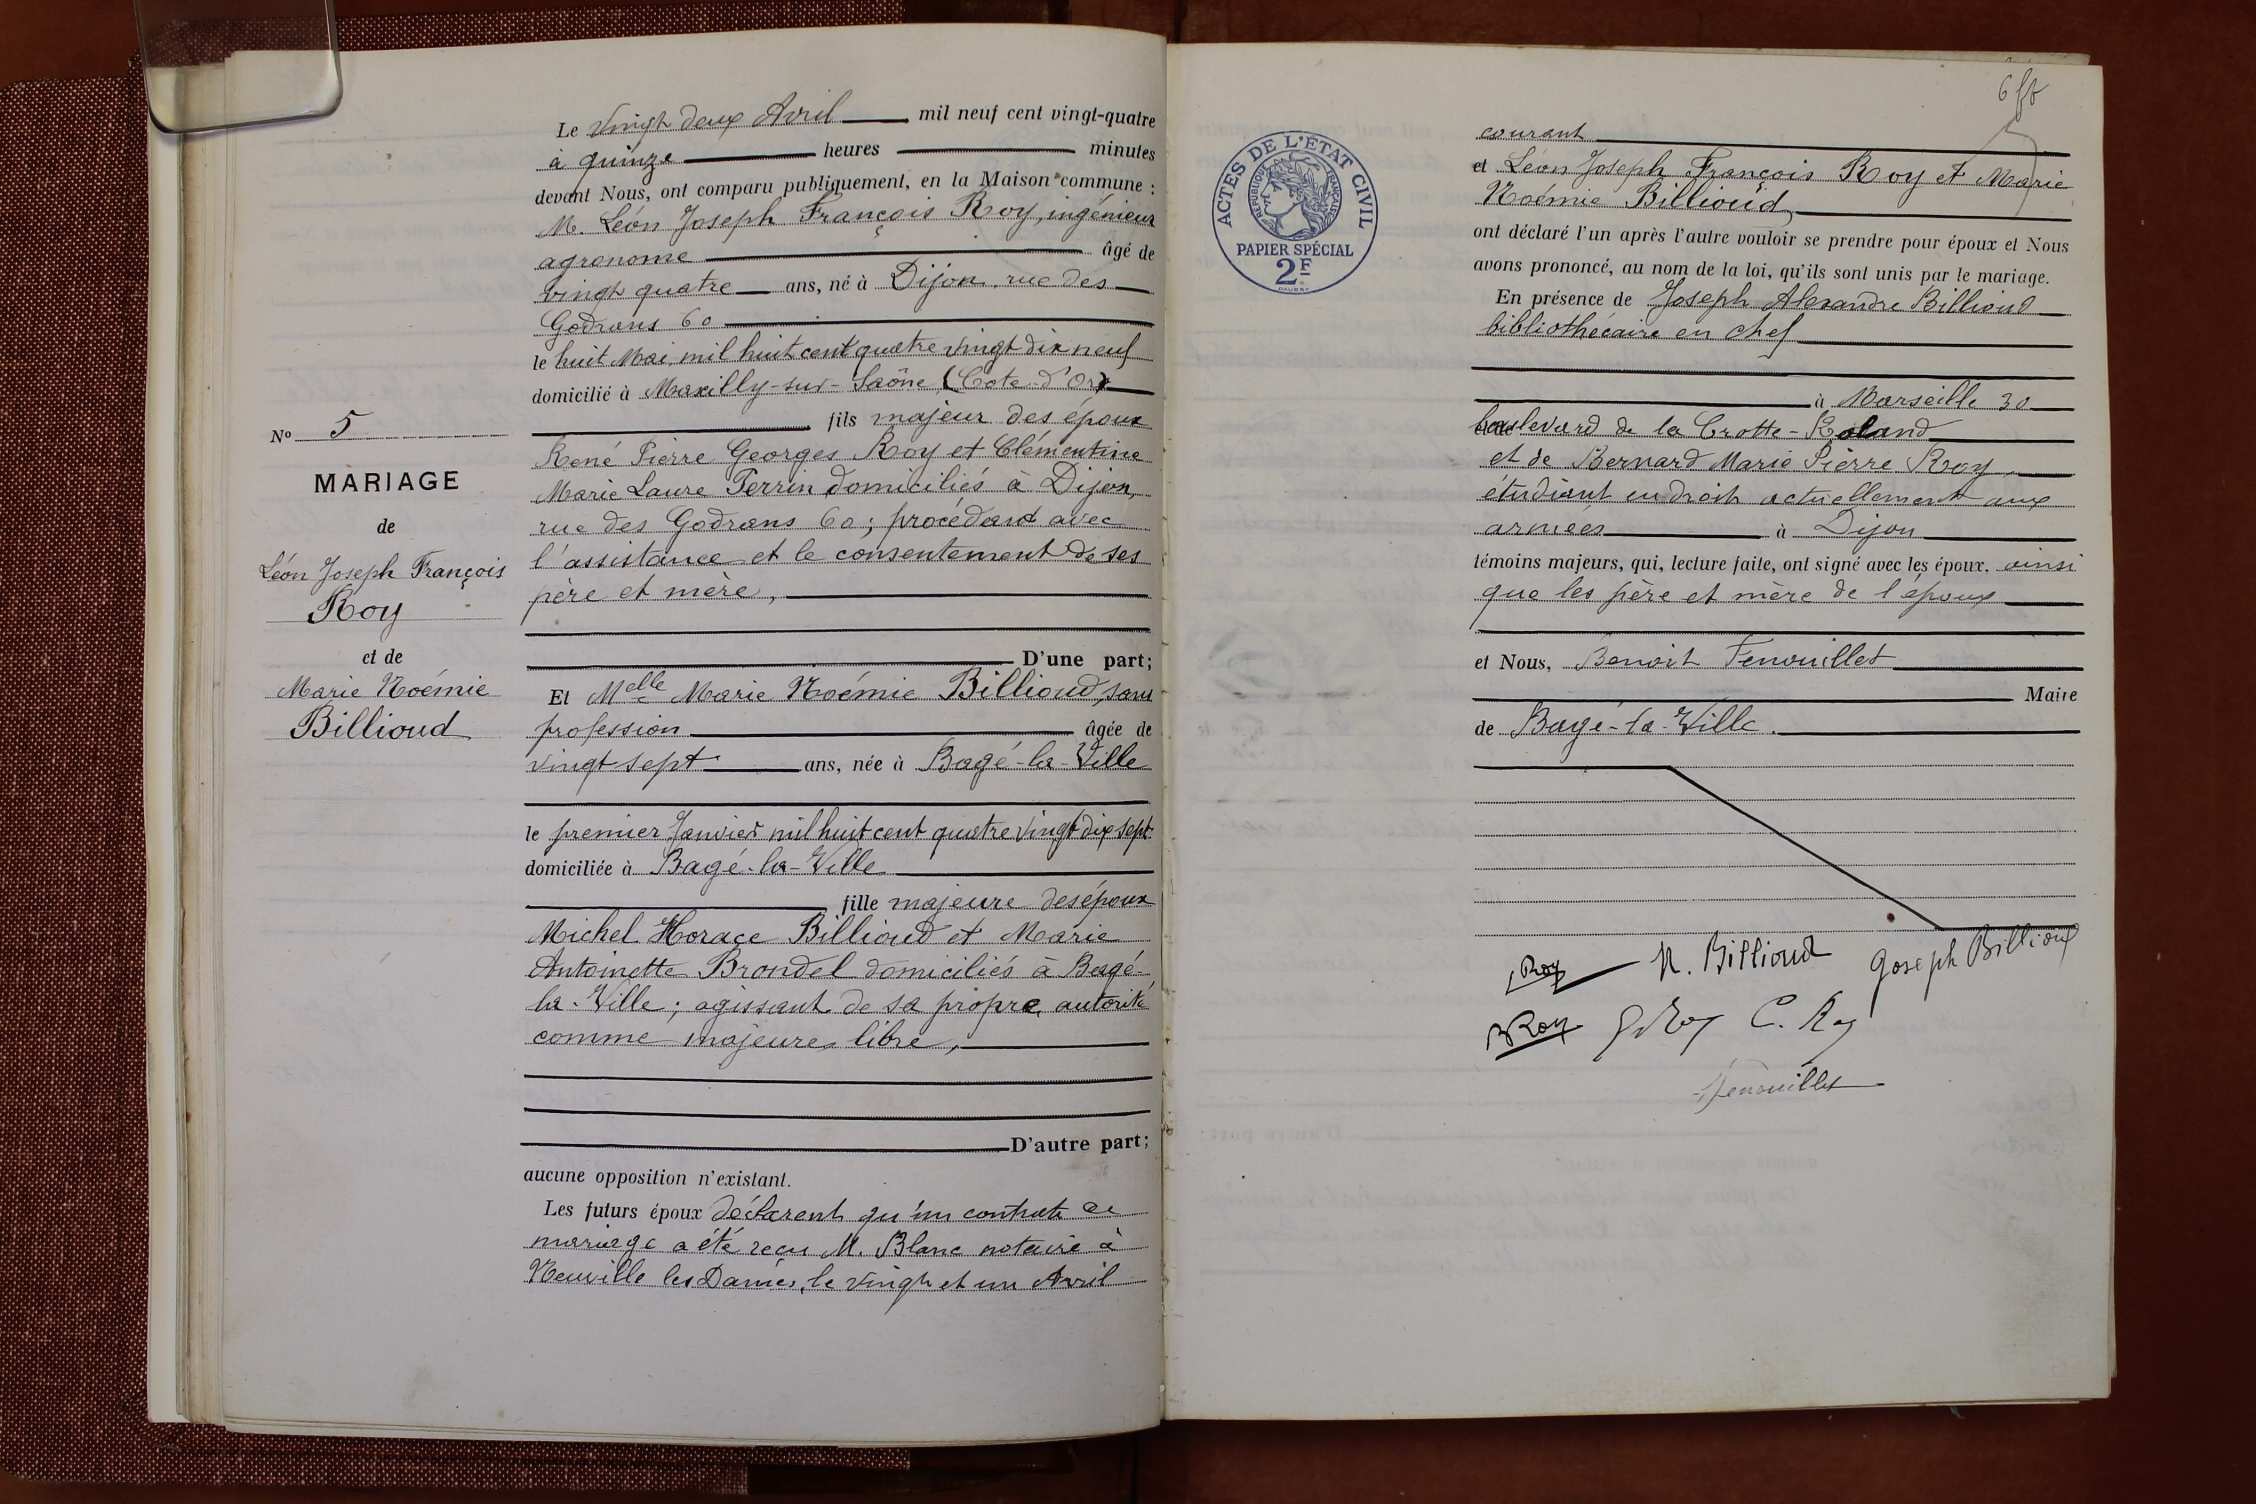 Le vingt deux Avril mil neuf cent vingt-quatre
à quinze heures minutes
devant Nous, ont comparu publiquement, en la Maison commune :
M. Léon Joseph François Roy, ingénieur
agronome âgé de
vingt quatre ans, né à Dijon, rue des
Godrans 60
le huit Mai mil huit cent quatre vingt dix neuf
domicilié à Maxilly-sur-Saône (Cote-d'Or)
fils majeur des époux
René Pierre Georges Roy et Clémentine
Marie Laure Perrin domiciliés à Dijon,
rue des Godrans 60; procédant avec
l'assistance et le consentement de ses
père et mère,
D'une part;
Et Melle Marie Noémie Billioud, sans
profession âgée de
vingt sept ans, née à Bagé-la-Ville
le premier Janvier mil huit cent quatre vingt dix sept
domiciliée à Bagé-la-Ville
fille majeure des époux
Michel Horace Billioud et Marie
Antoinette Brondel domiciliés à Bagé-
la-Ville; agissant de sa propre autorité
comme majeure libre,
D'autre part;
aucune opposition n'existant.
Les futurs époux déclarent qu'un contrat de
mariage a été reçu M. Blanc notaire à
Neuville les Dames, le vingt et un Avril
No 5
MARIAGE
de
Léon Joseph François
Roy
et de
Marie Noémie
Billioud
ACTES DE L'ETAT CIVIL
REPUBLIQUE FRANÇAISE
PAPIER SPÉCIAL
2F
courant
et Léon Joseph François Roy et Marie
Noémie Billioud,
ont déclaré l'un après l'autre vouloir se prendre pour époux et Nous
avons prononcé, au nom de la loi, qu'ils sont unis par le mariage.
En présence de Joseph Alexandre Billioud
bibliothécaire en chef
à Marseille 30
boulevard de la Crotte-Roland
et de Bernard Marie Pierre Roy,
étudiant en droit actuellement aux
armées à Dijon
témoins majeurs, qui, lecture faite, ont signé avec les époux. ainsi
que les père et mère de l'époux
et Nous, Benoit Fenouillet
Maire
de Bagé-la-Ville.
Roy N. Billioud Joseph Billioud
BRoy GRoy C. Roy
Fenouillet